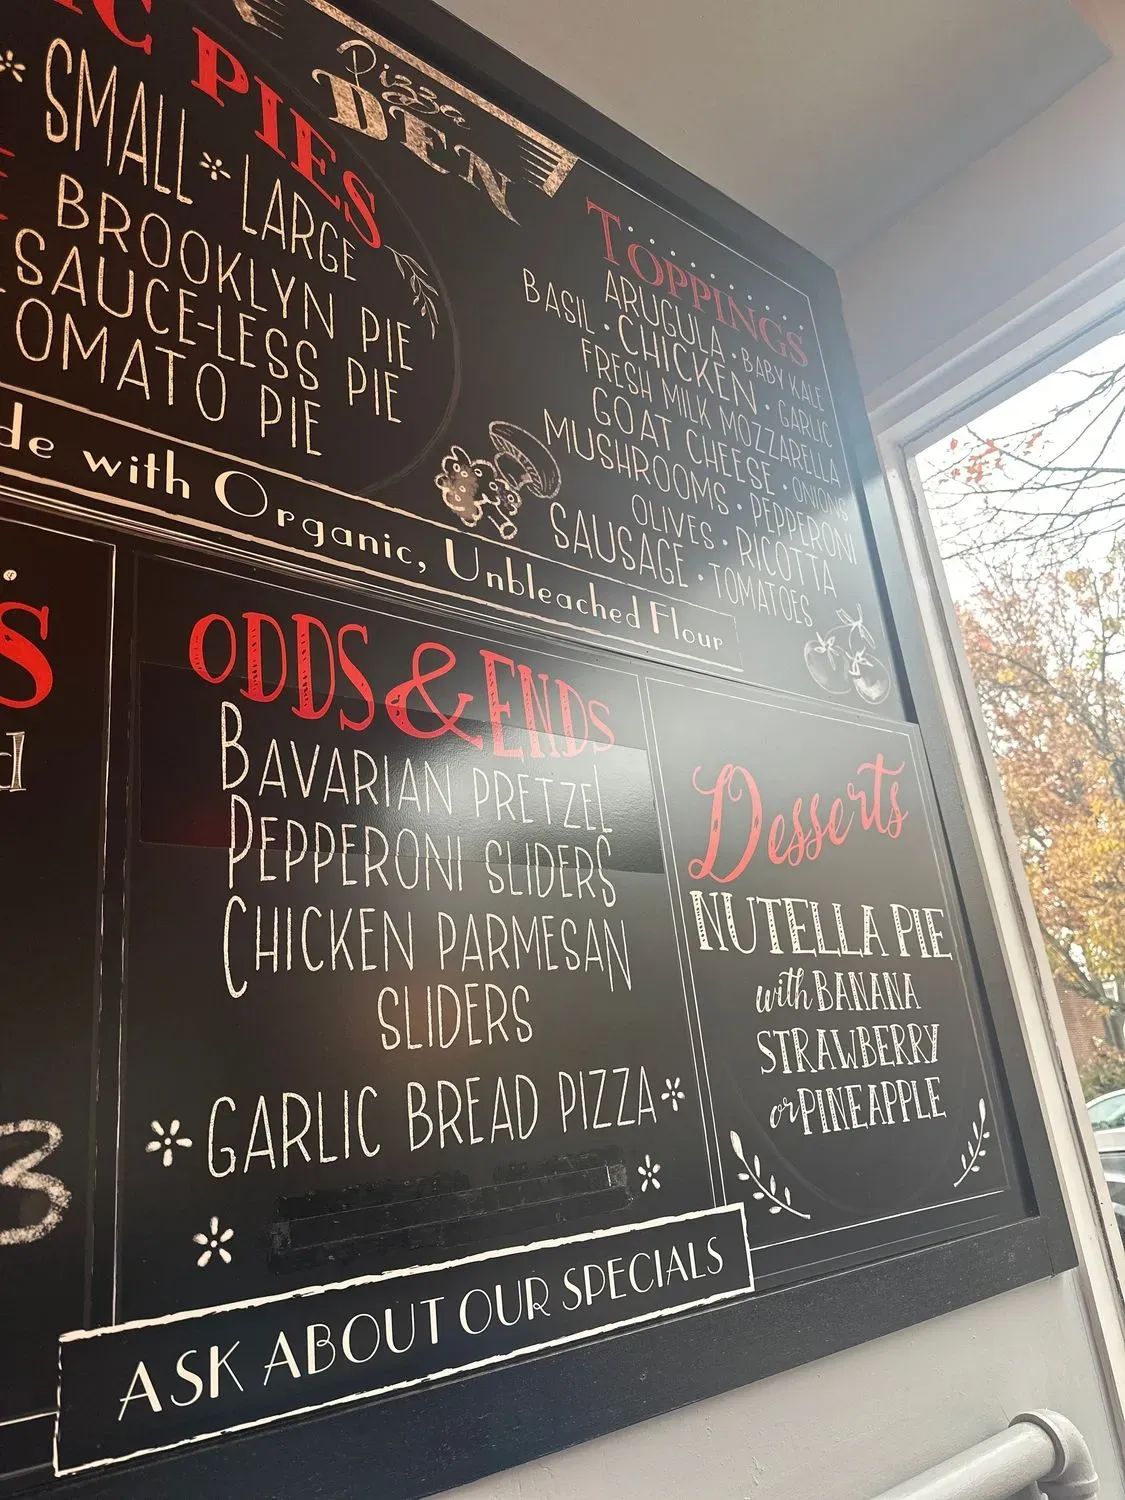 Pizza
DEN
IC PIES
SMALL * LARGE
BROOKLYN PIE
SAUCE-LESS PIE
OMATO PIE
de with Organic, Unbleached Flour
TOPPINGS
ARUGULA · BABY KALE
BASIL · CHICKEN · GARLIC
FRESH MILK MOZZARELLA
GOAT CHEESE · ONIONS
MUSHROOMS · PEPPERONI
OLIVES · RICOTTA
SAUSAGE · TOMATOES
S
d
3
ODDS & ENDS
BAVARIAN PRETZEL
PEPPERONI SLIDERS
CHICKEN PARMESAN
SLIDERS
GARLIC BREAD PIZZA
ASK ABOUT OUR SPECIALS
Desserts
NUTELLA PIE
with BANANA
STRAWBERRY
or PINEAPPLE